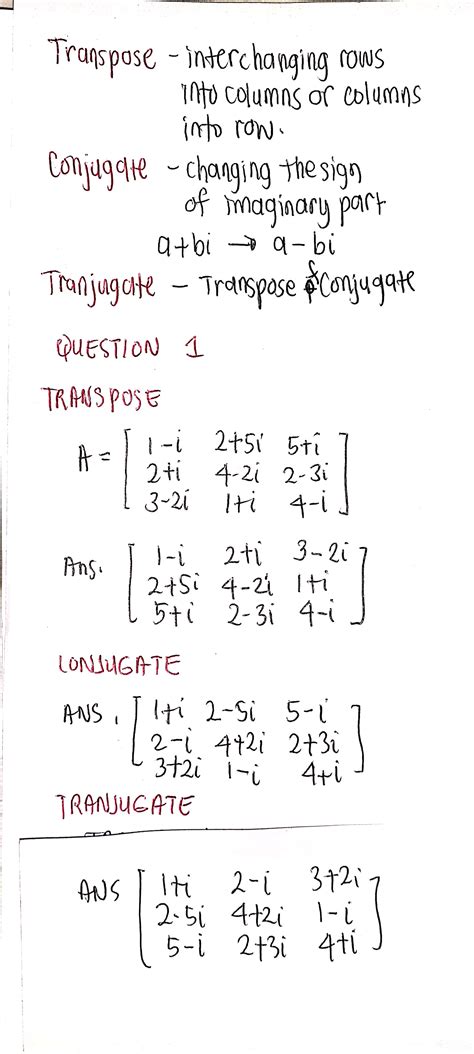 Transpose - interchanging rows
into columns or columns
into row.
Conjugate - changing the sign
of imaginary part
a+bi → a-bi
Tranjugate - Transpose & Conjugate
QUESTION 1
TRANSPOSE
A = [ 1-i 2+5i 5+i
2+i 4-2i 2-3i
3-2i 1+i 4-i ]
Ans. [ 1-i 2+i 3-2i
2+5i 4-2i 1+i
5+i 2-3i 4-i ]
CONJUGATE
ANS. [ 1+i 2-5i 5-i
2-i 4+2i 2+3i
3+2i 1-i 4+i ]
TRANJUGATE
ANS [ 1+i 2-i 3+2i
2-5i 4+2i 1-i
5-i 2+3i 4+i ]